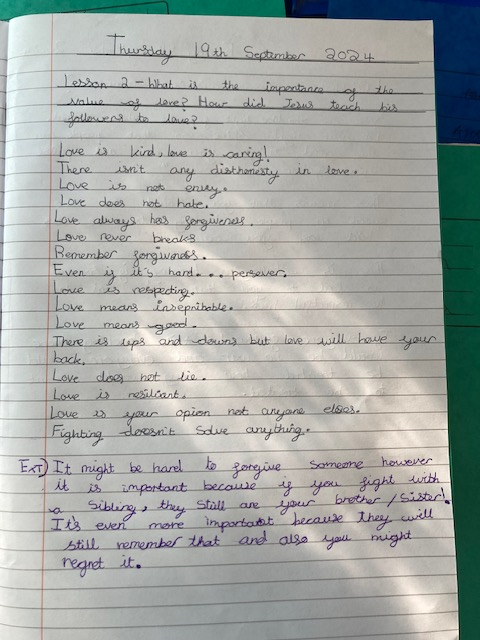 Thursday 19th September 2024
Lesson 2 - What is the importance of the
value of love? How did Jesus teach his
followers to love?
Love is kind, love is caring!
There isn't any disthonesty in love.
Love is not envy.
Love does not hate.
Love always has forgiveness.
Love never breaks
Remember forgiveness.
Even if it's hard... persever.
Love is respecting.
Love means insepribable.
Love means good.
There is ups and downs but love will have your
back.
Love does not lie.
Love is resiliant.
Love is your opion not anyone elses.
Fighting doesn't solve anything.
EXT) It might be hard to forgive someone however
it is important because if you fight with
a sibling, they still are your brother/sister!
It's even more important because they will
still remember that and also you might
regret it.